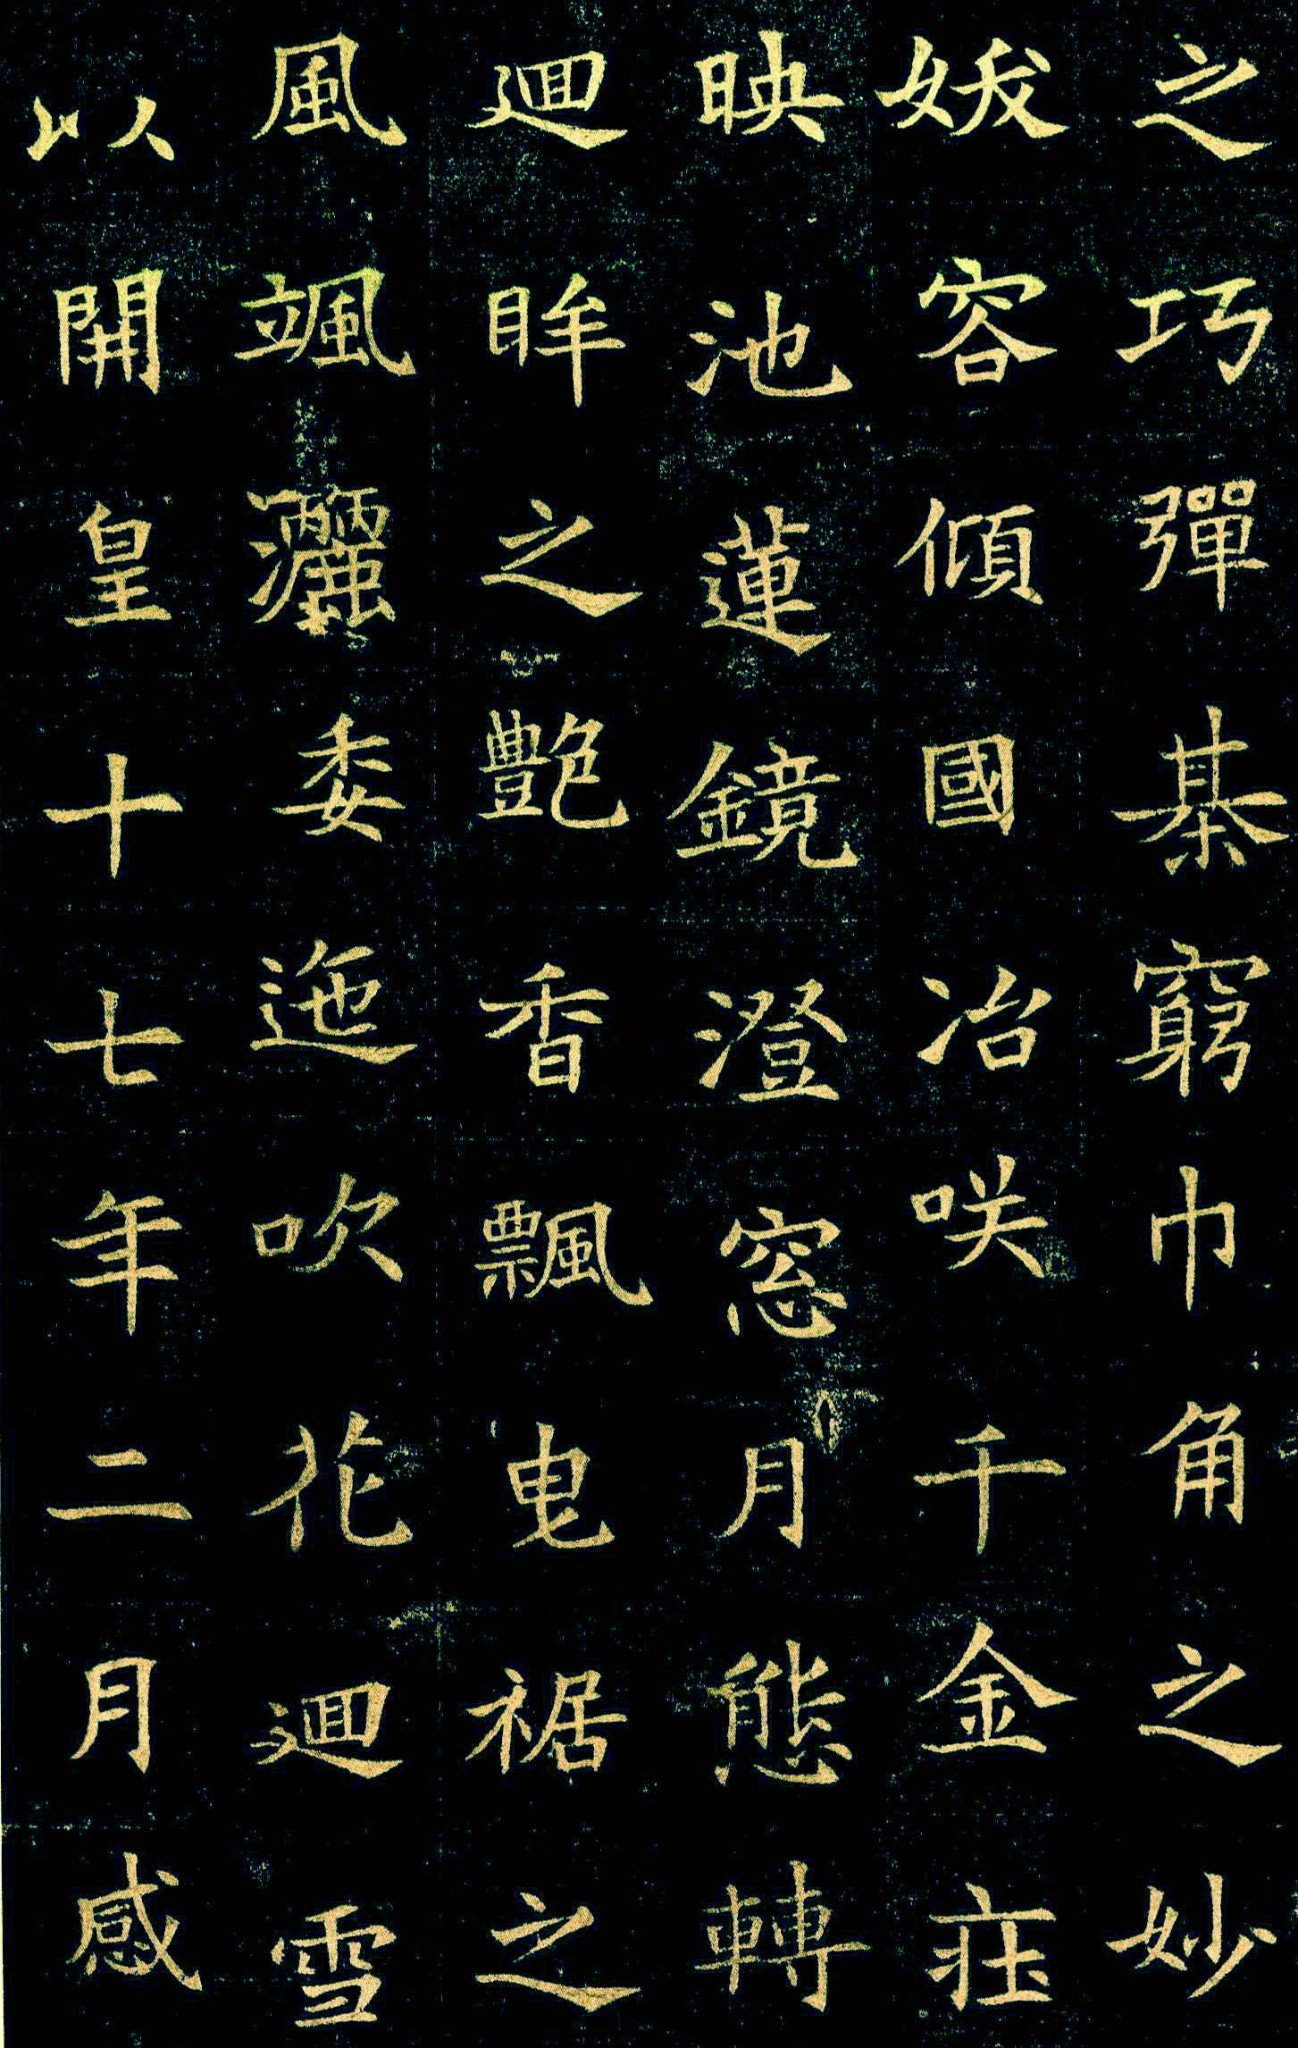 之巧彈棊窮巾角之妙
妭容傾國冶咲千金庄
映池蓮鏡澄窓月態轉
迴眸之艷香飄曳裾之
風颯灑委迤吹花迴雪
以開皇十七年二月感